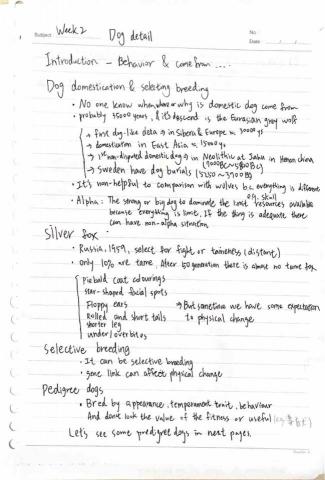 Subject Week 2 Dog detail No.
Date / /
Introduction - Behavior & come from ....
Dog domestication & selecting breeding
• No one know when, where or why is domestic dog come from
• probably 35000 years, & it's descend is the Eurasian grey wolf
→ first dog-like data → in Siberia & Europe ≈ 30000 ys
→ domestication in East Asia ≈ 15000 ys
→ 1st non-disputed domestic dog → in Neolithic at Jiahu in Henan china
(7000BC~5800BC)
→ Sweden have dog burials (5250~3700BC)
• It's non-helpful to comparison with wolves b.c. everything is different
e.g. skull
• Alpha: The strong or big dog to dominate the limit resources available
because everything is limit, If the thing is adequate there
can have non-alpha situation
Silver fox
• Russia, 1959, select for fight or tameness (distant)
• only 10% are tame. After 50 generation there is about no tame fox
Piebald coat colourings
Star-shaped facial spots
Floppy ears → But sometime we have some expectation
Rolled and short tails to physical change
shorter leg
under/overbites
Selective breeding
• It can be selective breeding
• gene link can affect physical change
Pedigree dogs
• Bred by appearance, temperament trait, behaviour
And don't look the value of the fitness or useful
Let's see some predigree dogs in next pages.